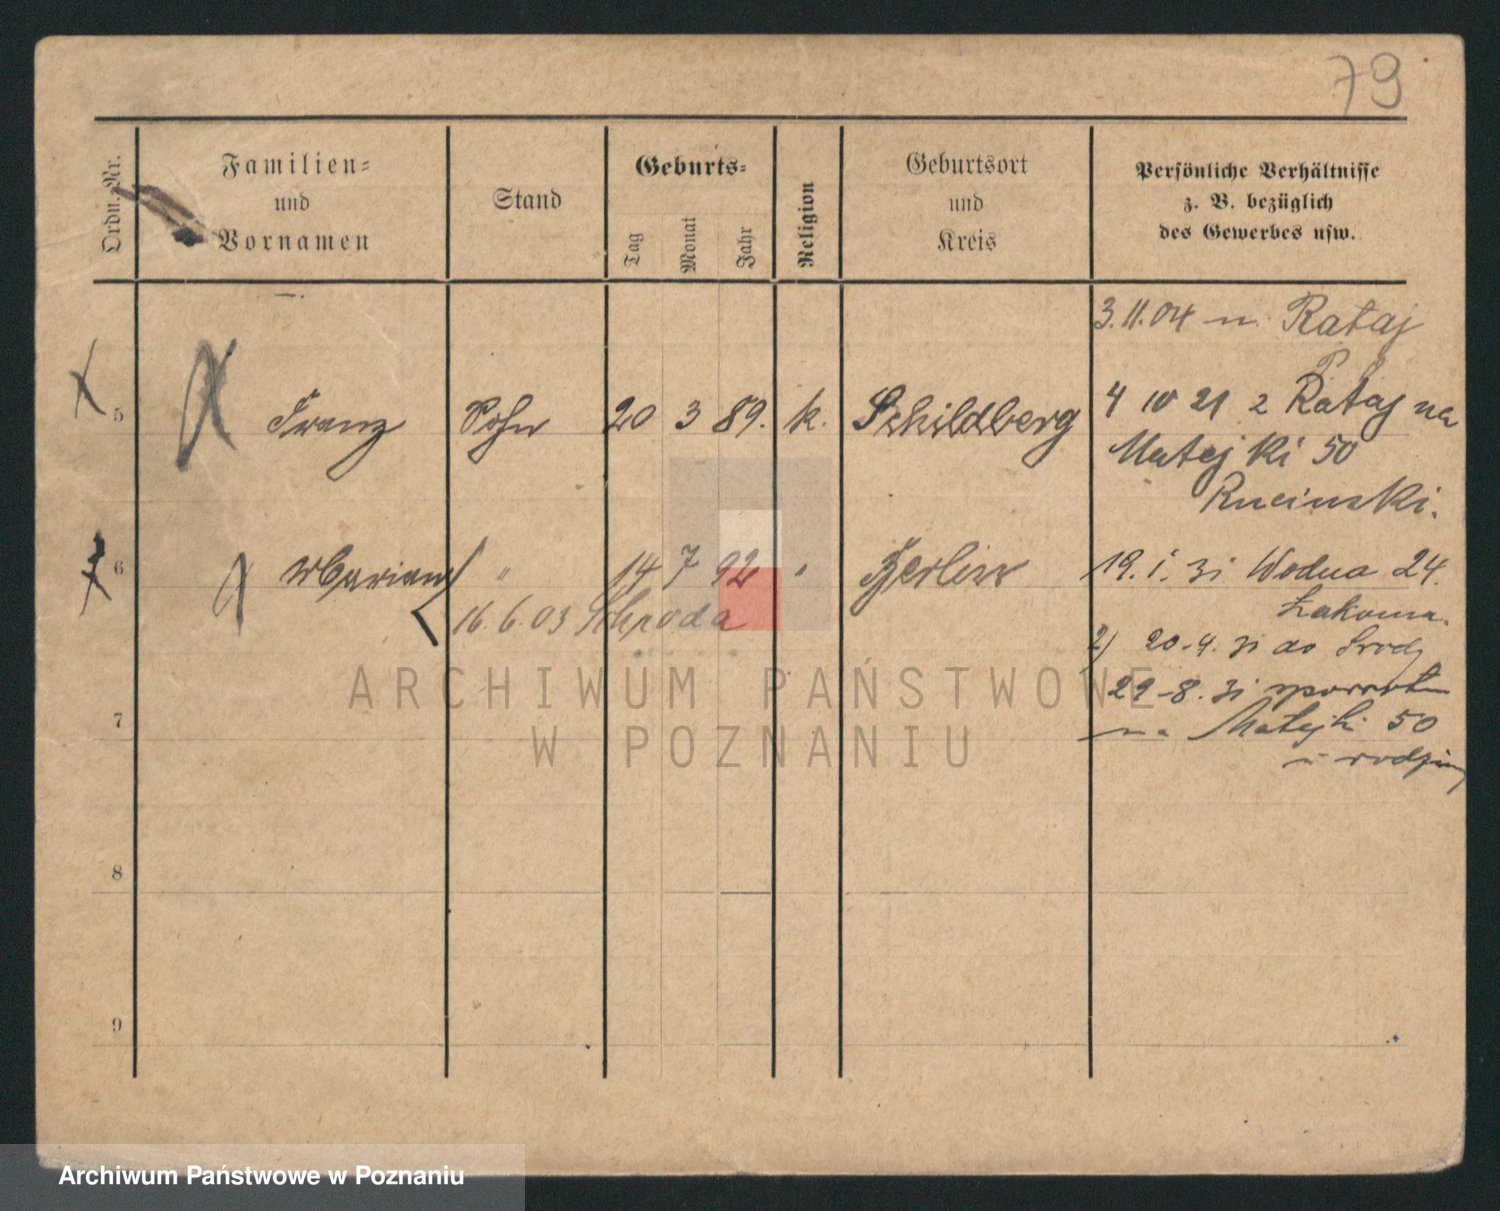 79
Ordn. Nr.
Familien-
und
Vornamen
Stand
Geburts-
Tag
Monat
Jahr
Religion
Geburtsort
und
Kreis
Persönliche Verhältnisse
z. B. bezüglich
des Gewerbes usw.
3.11.04 n. Rataj
5 Franz Sohn 20 3 89. k. Schildberg 4 10 21 z Rataj na
Matejki 50
Rucinski.
6 Marian " 14 7 92 " Berlin 19. I. 31 Wodna 24.
16.6.03 Schroda
Łakoma.
2) 20.4.31 do Środy
29-8.31 spowrotem
na Matejki 50
u rodziny
7
8
9
ARCHIWUM PAŃSTWOWE
W POZNANIU
Archiwum Państwowe w Poznaniu